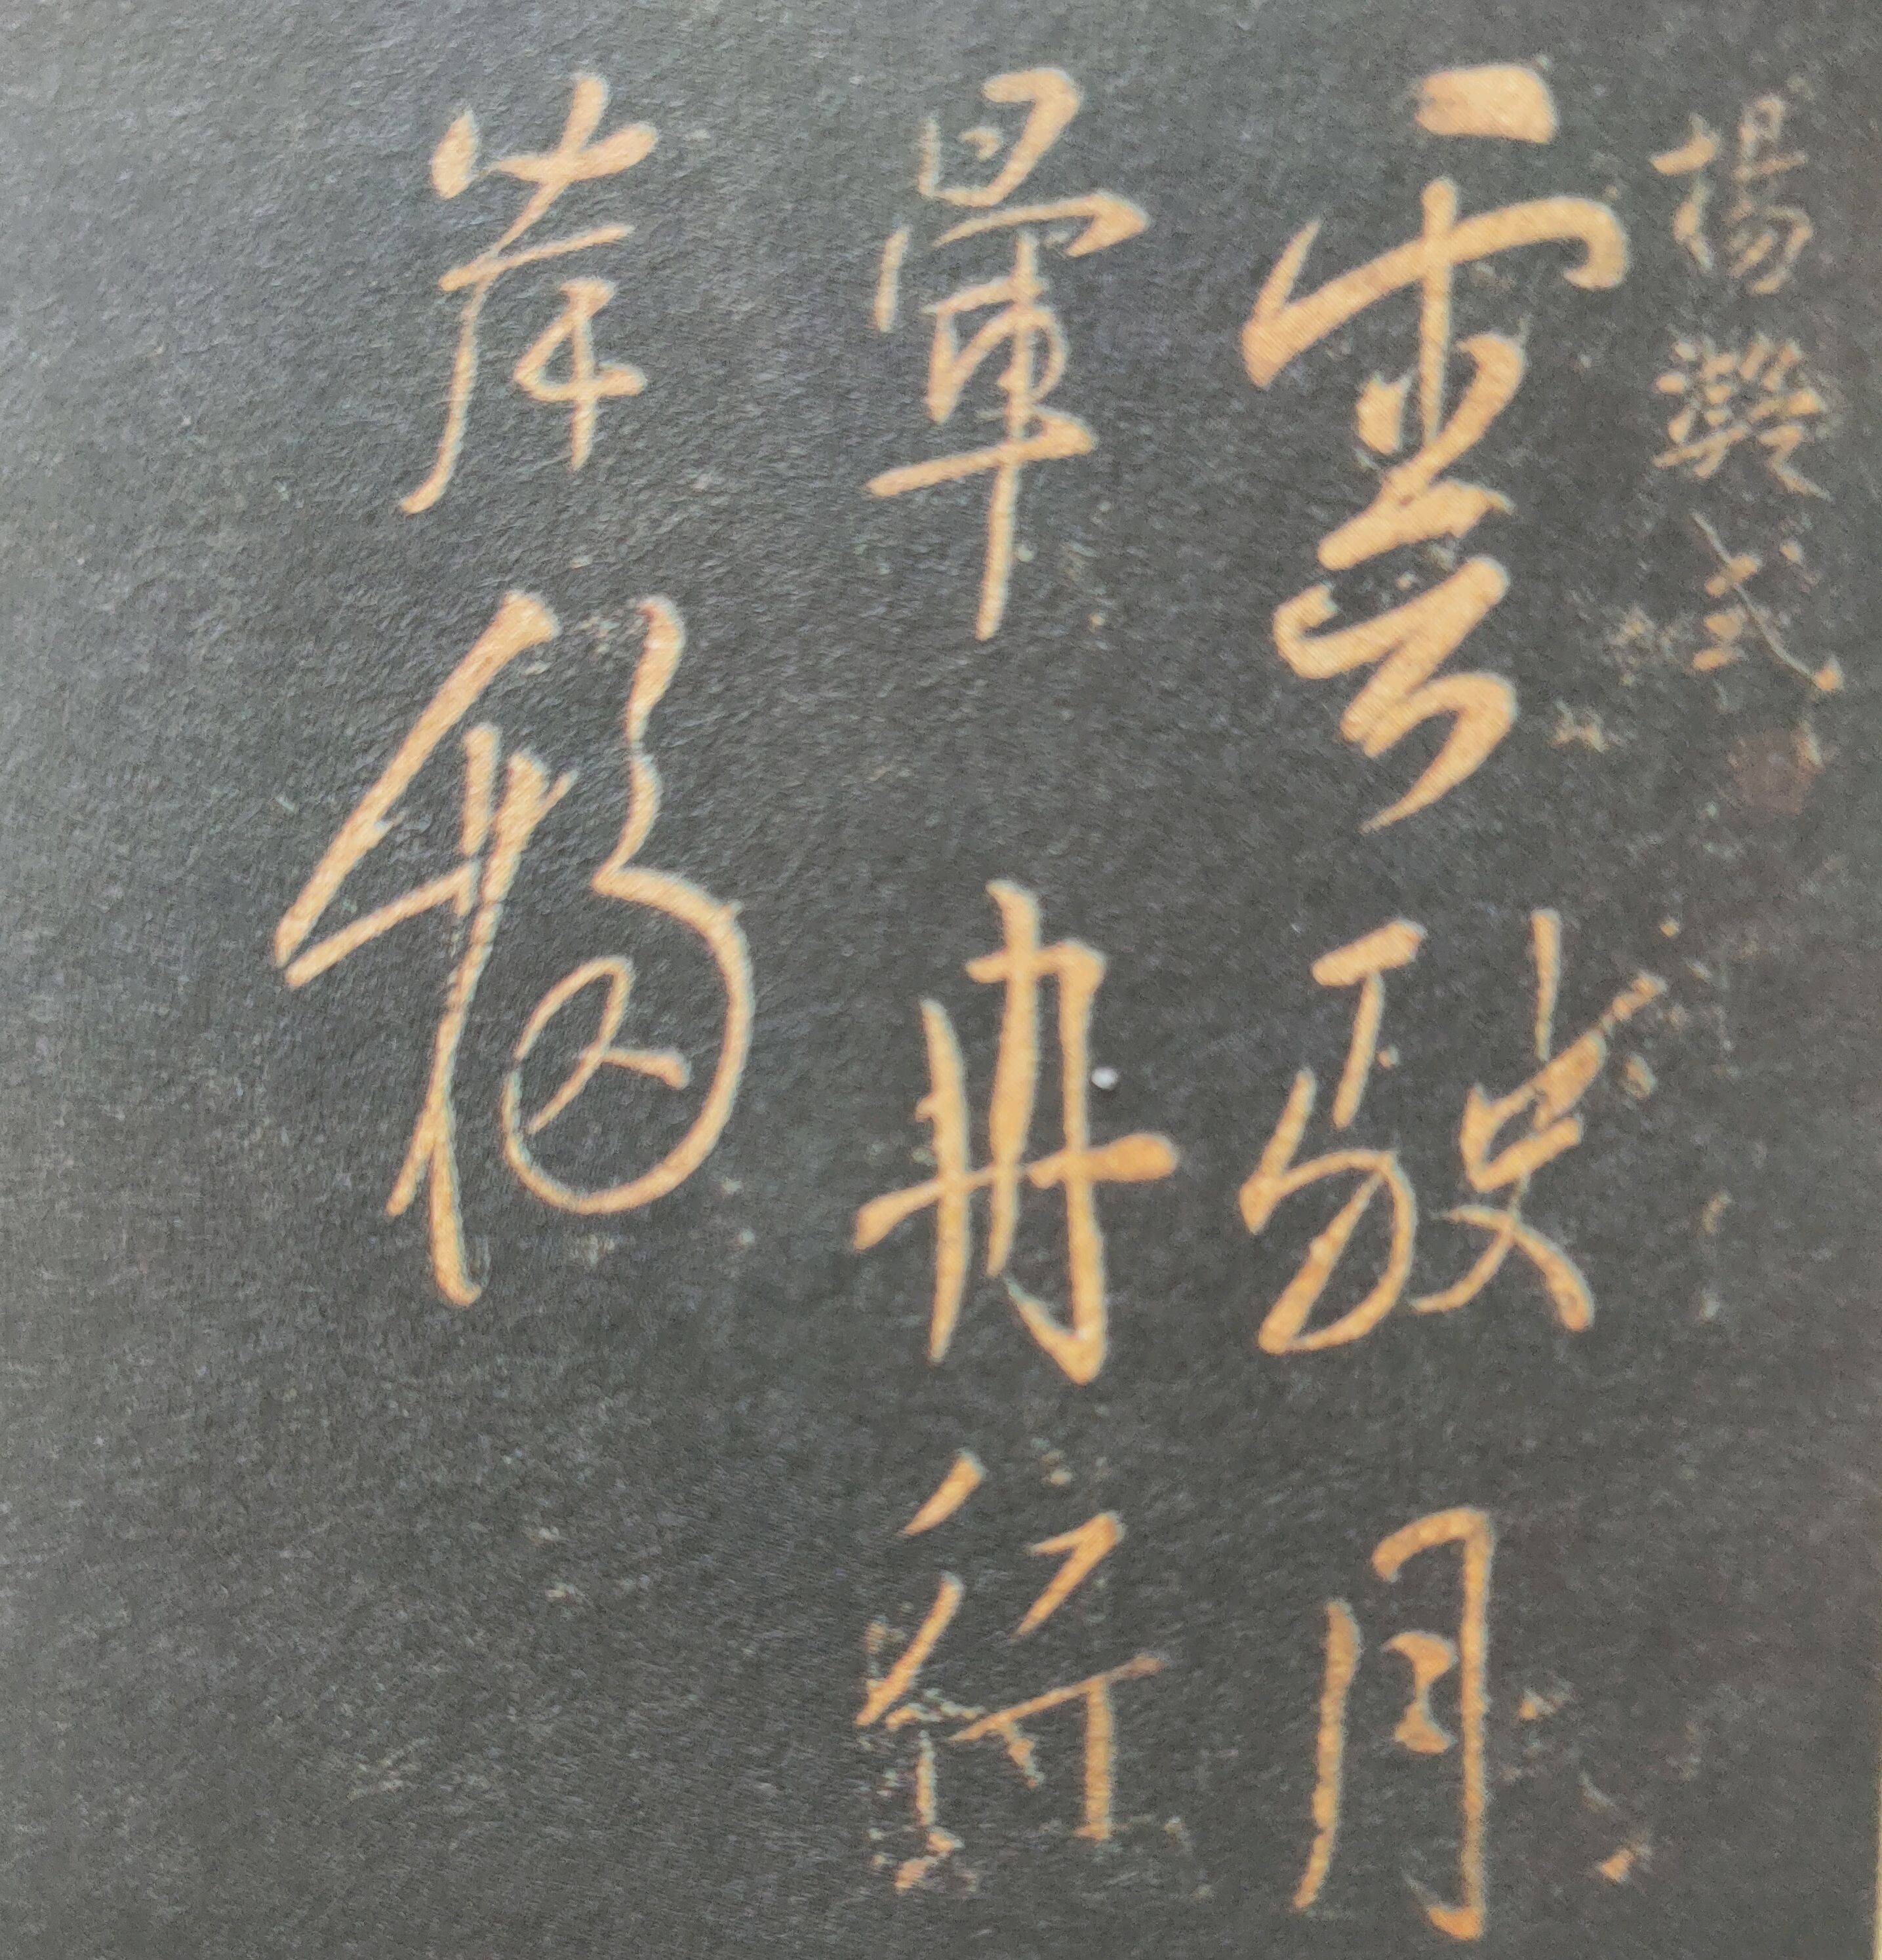 楊凝式
雲駛月
暈舟行
岸移